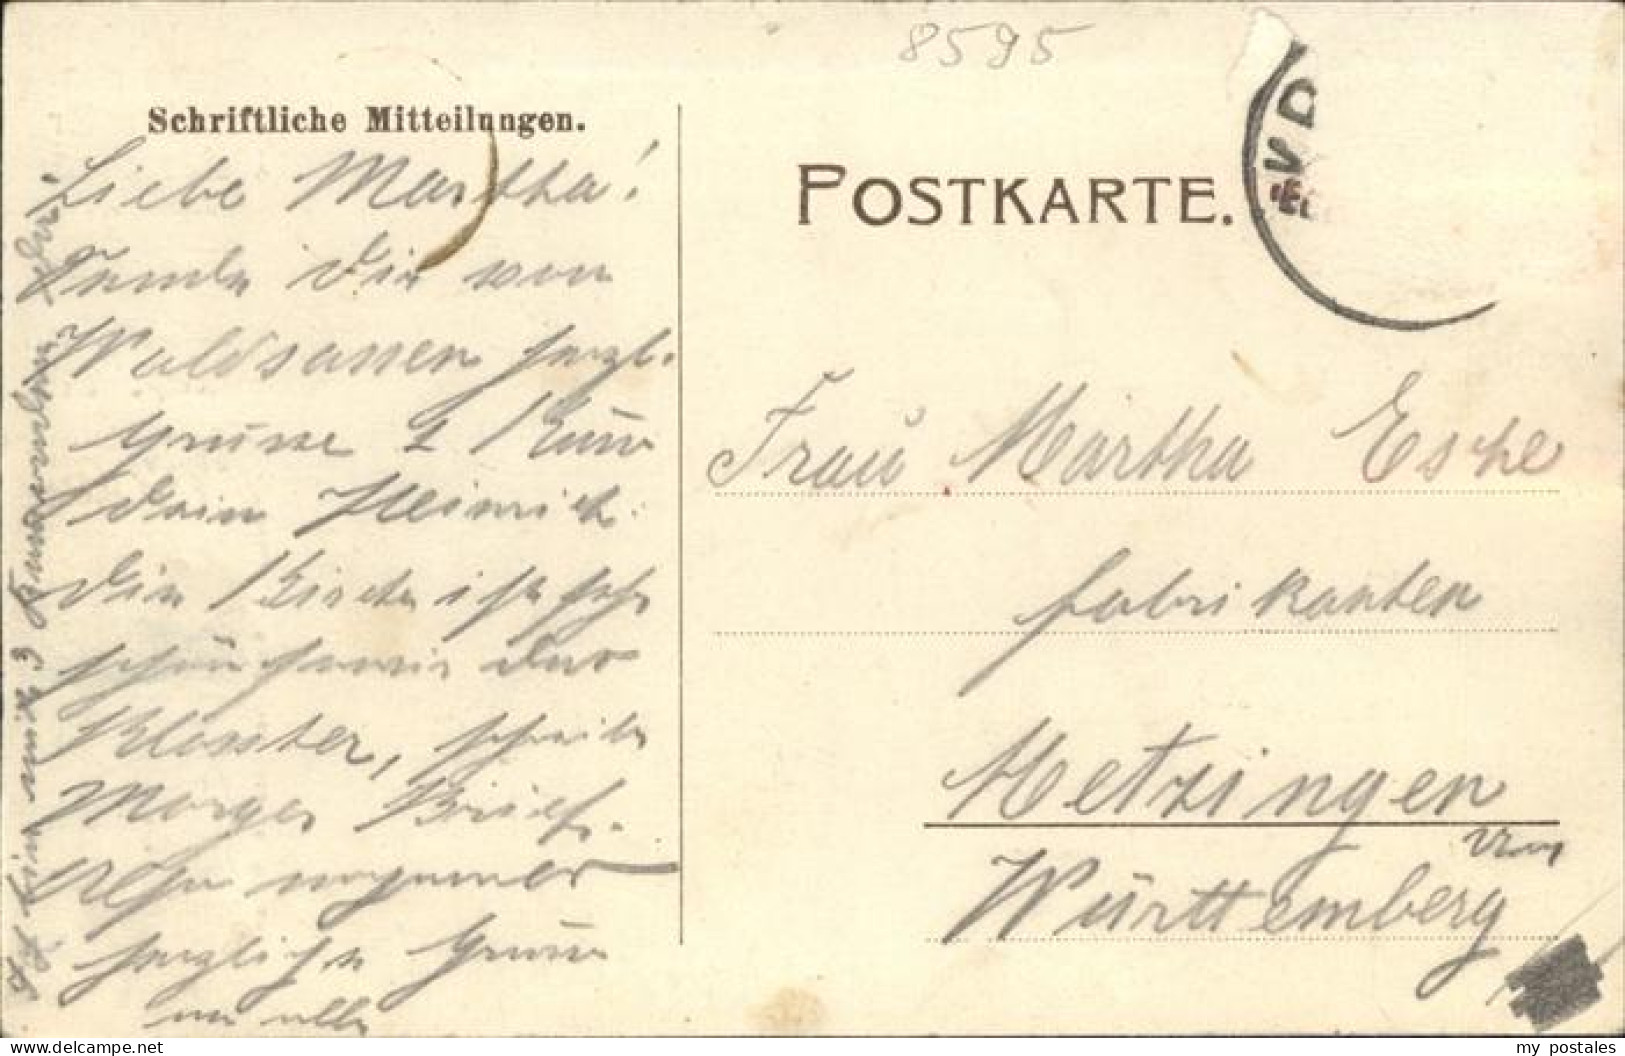 8595
Schriftliche Mitteilungen.
POSTKARTE.
Liebe Martha!
Sende Dir von
Waldsassen herzl.
Grüsse & Küsse
Dein Heinrich.
Die Kirche ist sehr
schön sowie das
Kloster, schreibe
Morgen Brief.
herzliche Grüsse
an alle
Frau Martha Esche
fabrikanten
Metzingen
Württemberg
my postales